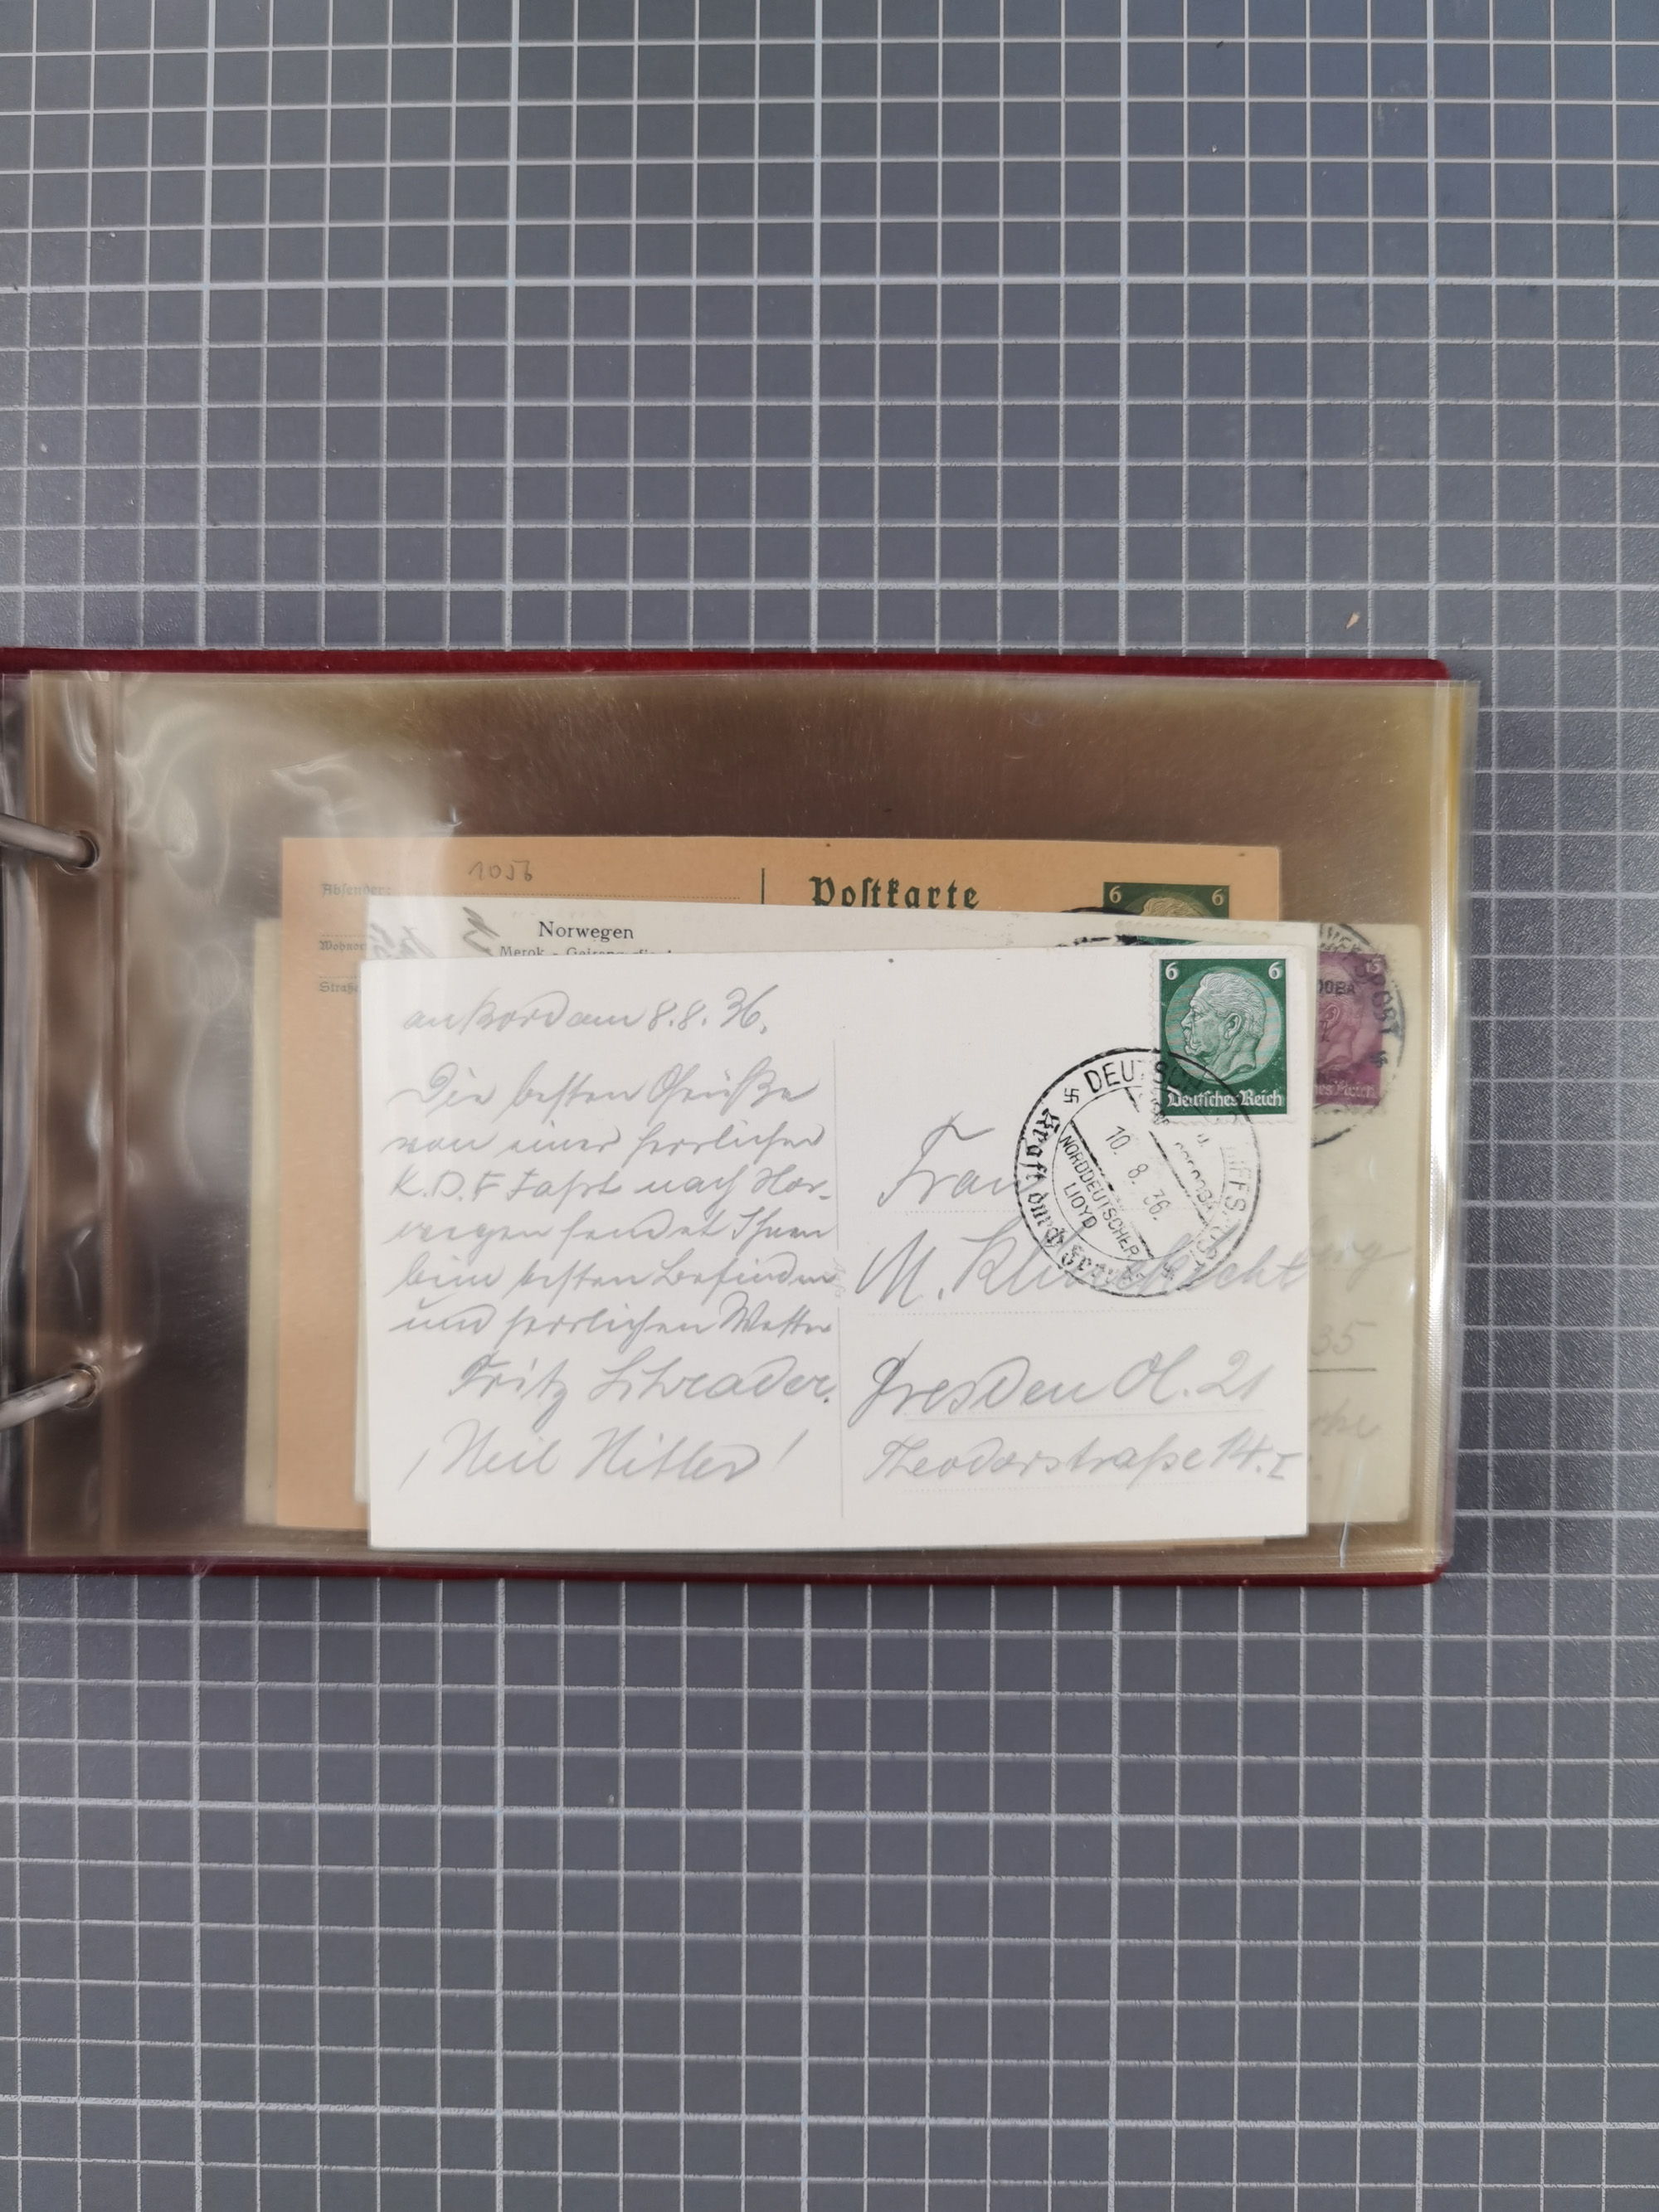 1056
Absender:
Postkarte
Wohnort
Straße
6 6
Norwegen
Merok - Geiranger
6 6
Deutsches Reich
an Bord am 8.8.36.
Die besten Grüße
von einer herrlichen
K.D.F Fahrt nach Nor-
wegen sendet Ihnen
beim besten Befinden
und herrlichen Wetter
Fritz Schrader.
! Heil Hitler !
DEUTSCHE
Kraft durch Freude
NORDDEUTSCHER
LLOYD
10. 8. 36.
Frau
M.
Dresden A. 21
Theodorstraße 14. I
35